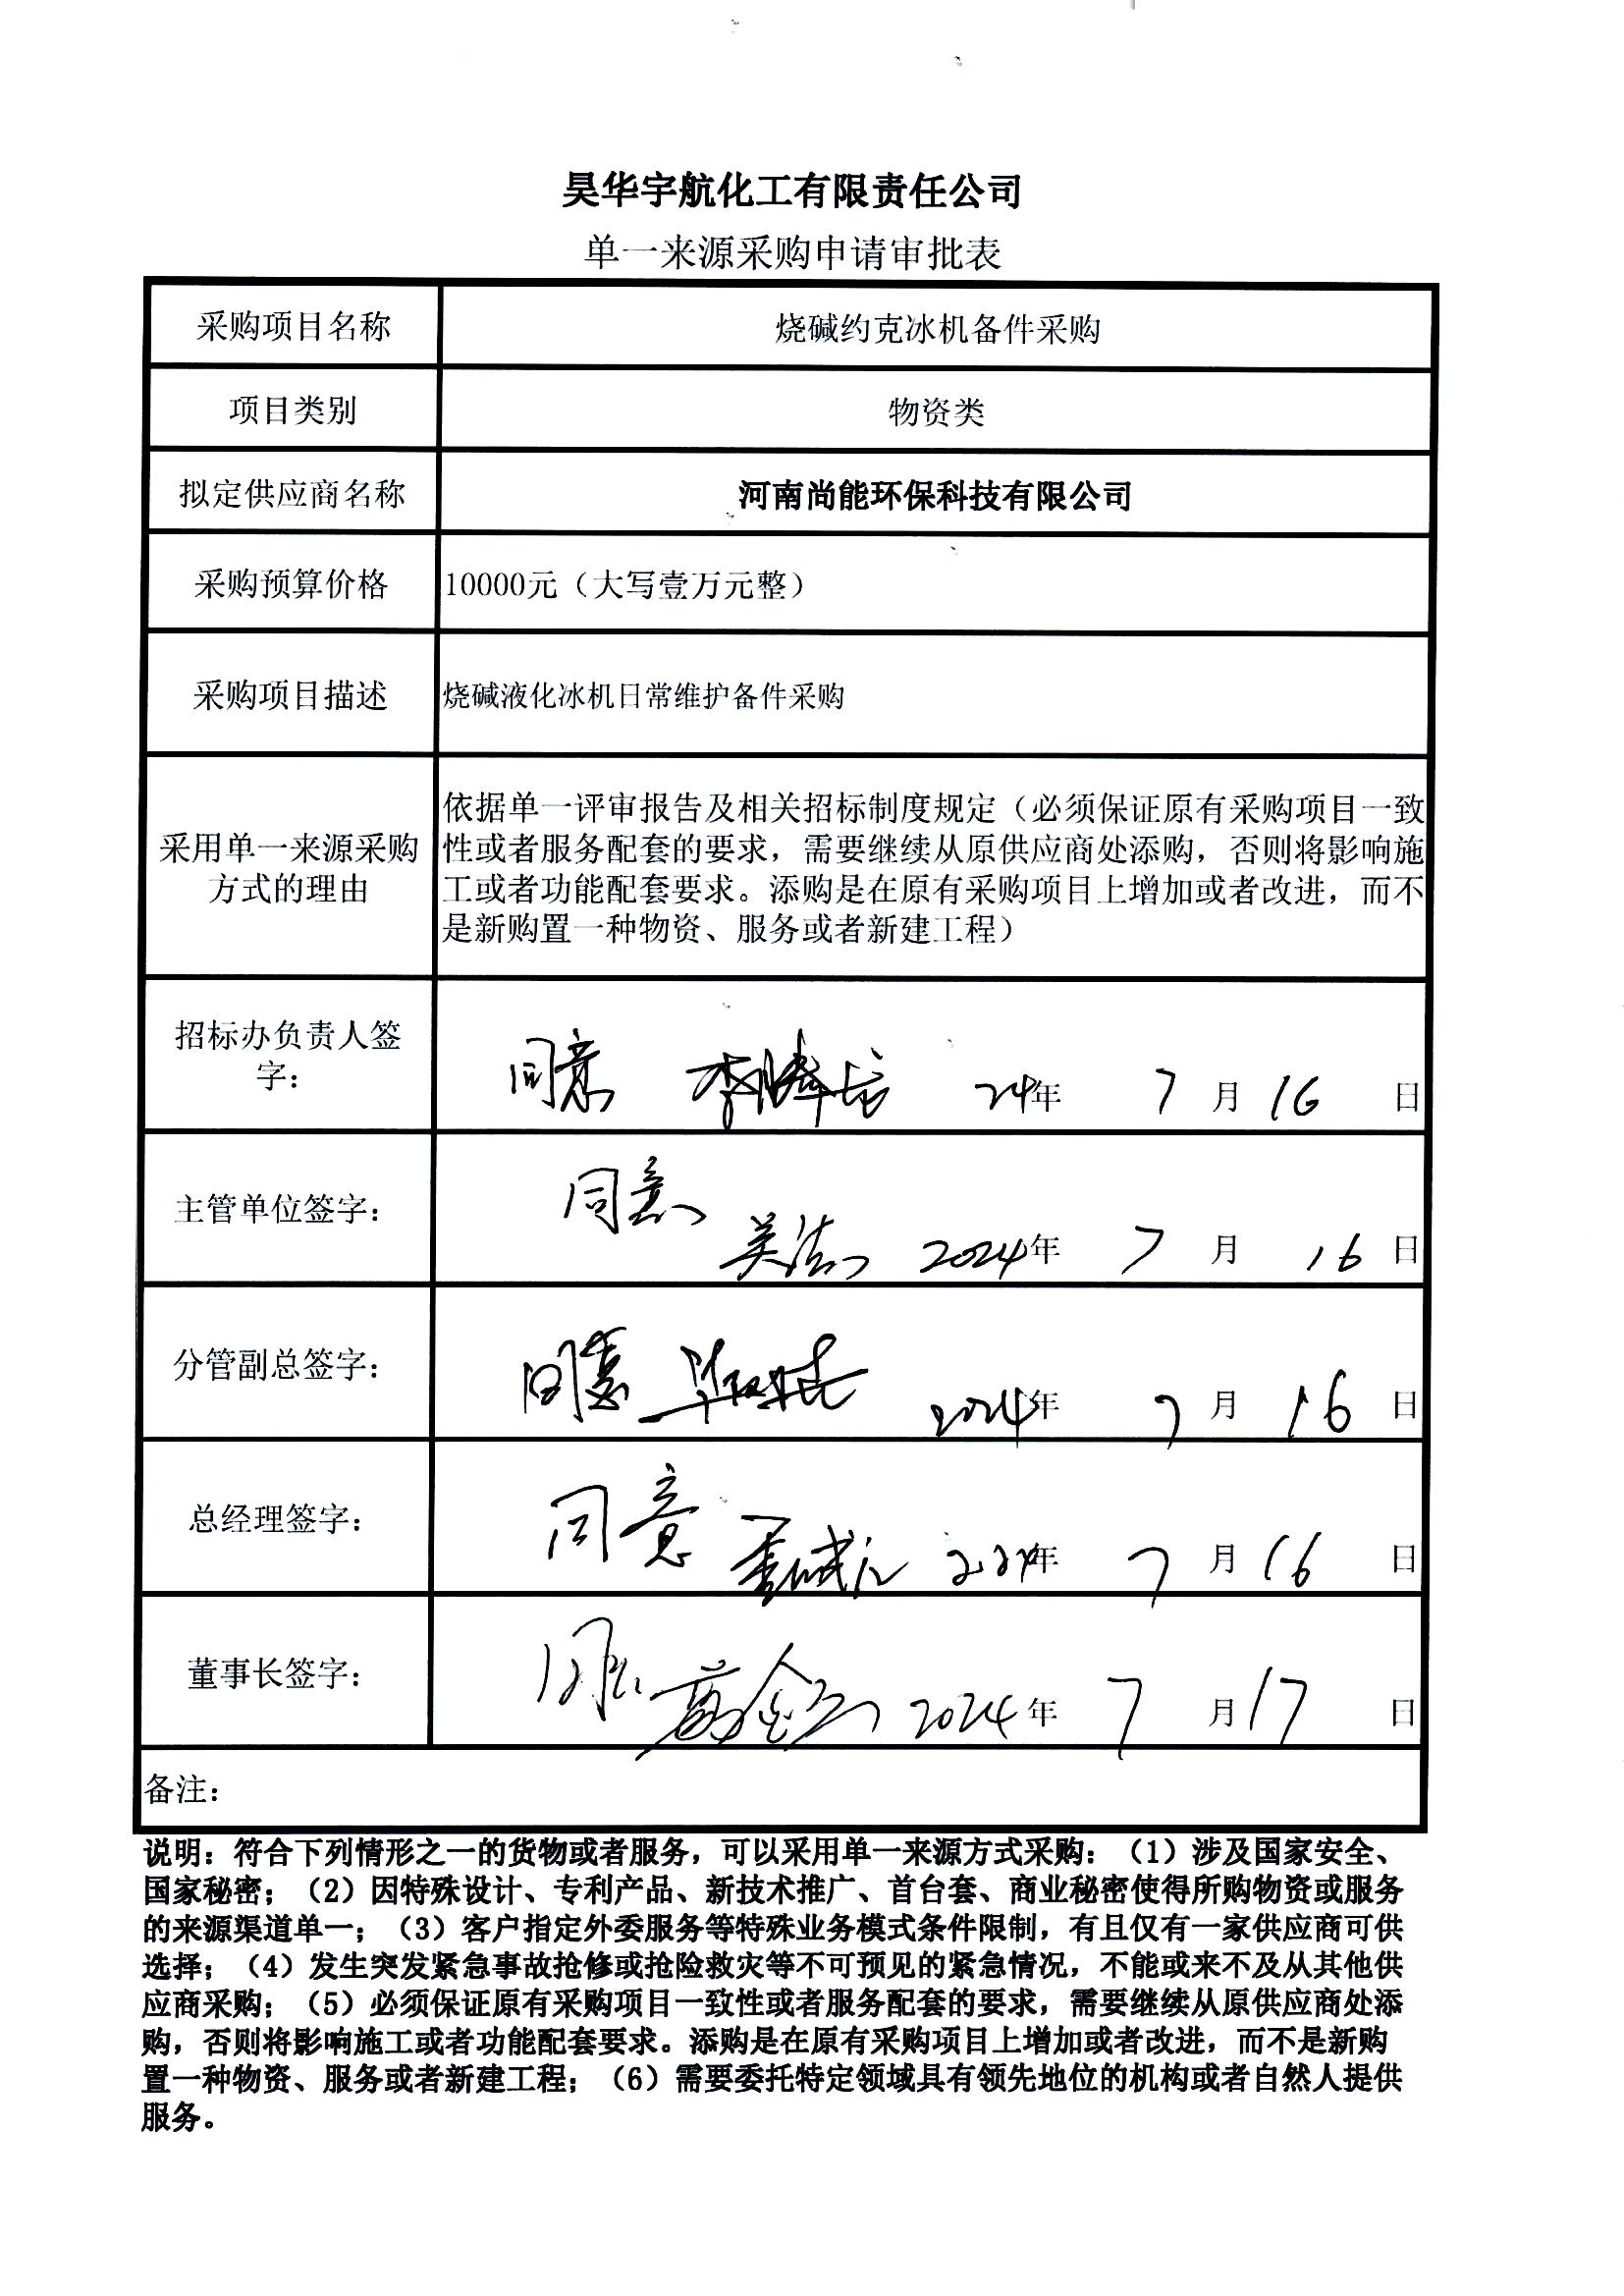 昊华宇航化工有限责任公司
单一来源采购申请审批表
采购项目名称
烧碱约克冰机备件采购
项目类别
物资类
拟定供应商名称
河南尚能环保科技有限公司
采购预算价格
10000元（大写壹万元整）
采购项目描述
烧碱液化冰机日常维护备件采购
采用单一来源采购
方式的理由
依据单一评审报告及相关招标制度规定（必须保证原有采购项目一致
性或者服务配套的要求，需要继续从原供应商处添购，否则将影响施
工或者功能配套要求。添购是在原有采购项目上增加或者改进，而不
是新购置一种物资、服务或者新建工程）
招标办负责人签
字：
同意 24年 7月16日
主管单位签字：
同意
2024年 7月16日
分管副总签字：
同意 2024年 7月16日
总经理签字：
同意 2024年 7月16日
董事长签字：
同意 2024年 7月17日
备注：
说明：符合下列情形之一的货物或者服务，可以采用单一来源方式采购：（1）涉及国家安全、
国家秘密；（2）因特殊设计、专利产品、新技术推广、首台套、商业秘密使得所购物资或服务
的来源渠道单一；（3）客户指定外委服务等特殊业务模式条件限制，有且仅有一家供应商可供
选择；（4）发生突发紧急事故抢修或抢险救灾等不可预见的紧急情况，不能或来不及从其他供
应商采购；（5）必须保证原有采购项目一致性或者服务配套的要求，需要继续从原供应商处添
购，否则将影响施工或者功能配套要求。添购是在原有采购项目上增加或者改进，而不是新购
置一种物资、服务或者新建工程；（6）需要委托特定领域具有领先地位的机构或者自然人提供
服务。